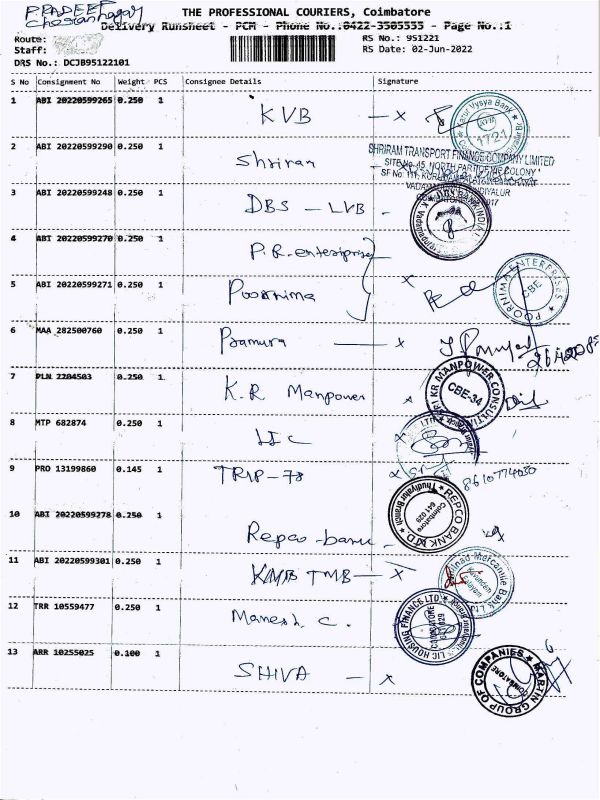 PRADEEP
THE PROFESSIONAL COURIERS, Coimbatore
Delivery Runsheet - PCM - Phone No.:0422-3505555 - Page No.:1
Route:
RS No.: 951221
Staff:
RS Date: 02-Jun-2022
DRS No.: DCJB95122101
S No Consignment No Weight PCS Consignee Details Signature
1 ABI 20220599265 0.250 1 KVB
Vysya Bank
1721
2 ABI 20220599290 0.250 1 Shriram
SHRIRAM TRANSPORT FINANCE COMPANY LIMITED
3 ABI 20220599248 0.250 1 DBS - LVB
4 ABI 20220599270 0.250 1 P.R. enterprises
5 ABI 20220599271 0.250 1 Poornima
POORNIMA ENTERPRISES
CBE
6 MAA 282500760 0.250 1
7 PLN 2204503 0.250 1 K.R Manpower
SRI KR MANPOWER CONSULTI
CBE-34
8 MTP 682874 0.250 1 LIC
9 PRO 13199860 0.145 1 TRIP-78
8610774030
10 ABI 20220599278 0.250 1 Repco-bank
REPCO BANK LTD
Thudiyalur Branch
Coimbatore
641 029
11 ABI 20220599301 0.250 1 KMB TMB
12 TRR 10559477 0.250 1 Manesh C.
LIC HOUSING FINANCE LTD
COIMBATORE
13 ARR 10255025 0.100 1 SHIVA
MARTIN GROUP OF COMPANIES
COIMBATORE